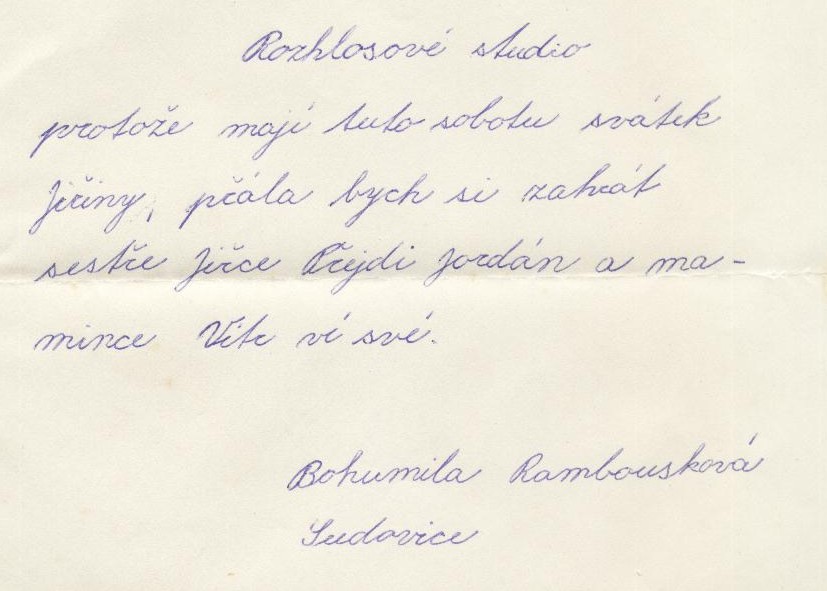 Rozhlasové studio
protože mají tuto sobotu svátek
Jiřiny, přála bych si zahrát
sestře Jiřce Přejdi Jordán a ma-
mince Vítr ví své.
Bohumila Rambousková
Sudovice